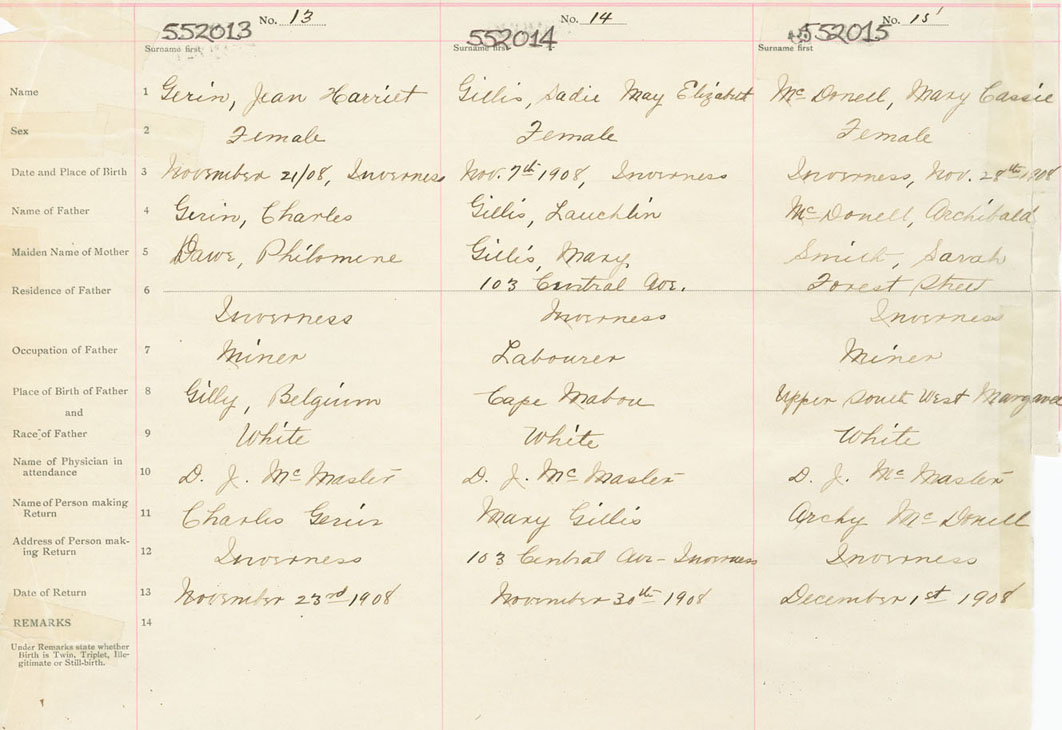 No. 13 No. 14 No. 15
552013 552014 552015
Surname first Surname first Surname first
Name 1 Gerin, Jean Harriet Gillis, Sadie May Elizabeth McDonell, Mary Cassie
Sex 2 Female Female Female
Date and Place of Birth 3 November 21/08, Inverness Nov. 7th 1908, Inverness Inverness, Nov. 28th 1908
Name of Father 4 Gerin, Charles Gillis, Lauchlin McDonell, Archibald
Maiden Name of Mother 5 Dawe, Philomine Gillis, Mary Smith, Sarah
Residence of Father 6 103 Central Ave. Forest Street
Inverness Inverness Inverness
Occupation of Father 7 Miner Labourer Miner
Place of Birth of Father 8 Gilly, Belgium Cape Mabou Upper South West Margaree
and
Race of Father 9 White White White
Name of Physician in
attendance 10 D. J. McMaster D. J. McMaster D. J. McMaster
Name of Person making
Return 11 Charles Gerin Mary Gillis Archy McDonell
Address of Person mak-
ing Return 12 Inverness 103 Central Ave - Inverness Inverness
Date of Return 13 November 23rd 1908 November 30th 1908 December 1st 1908
REMARKS 14
Under Remarks state whether
Birth is Twin, Triplet, Ille-
gitimate or Still-birth.